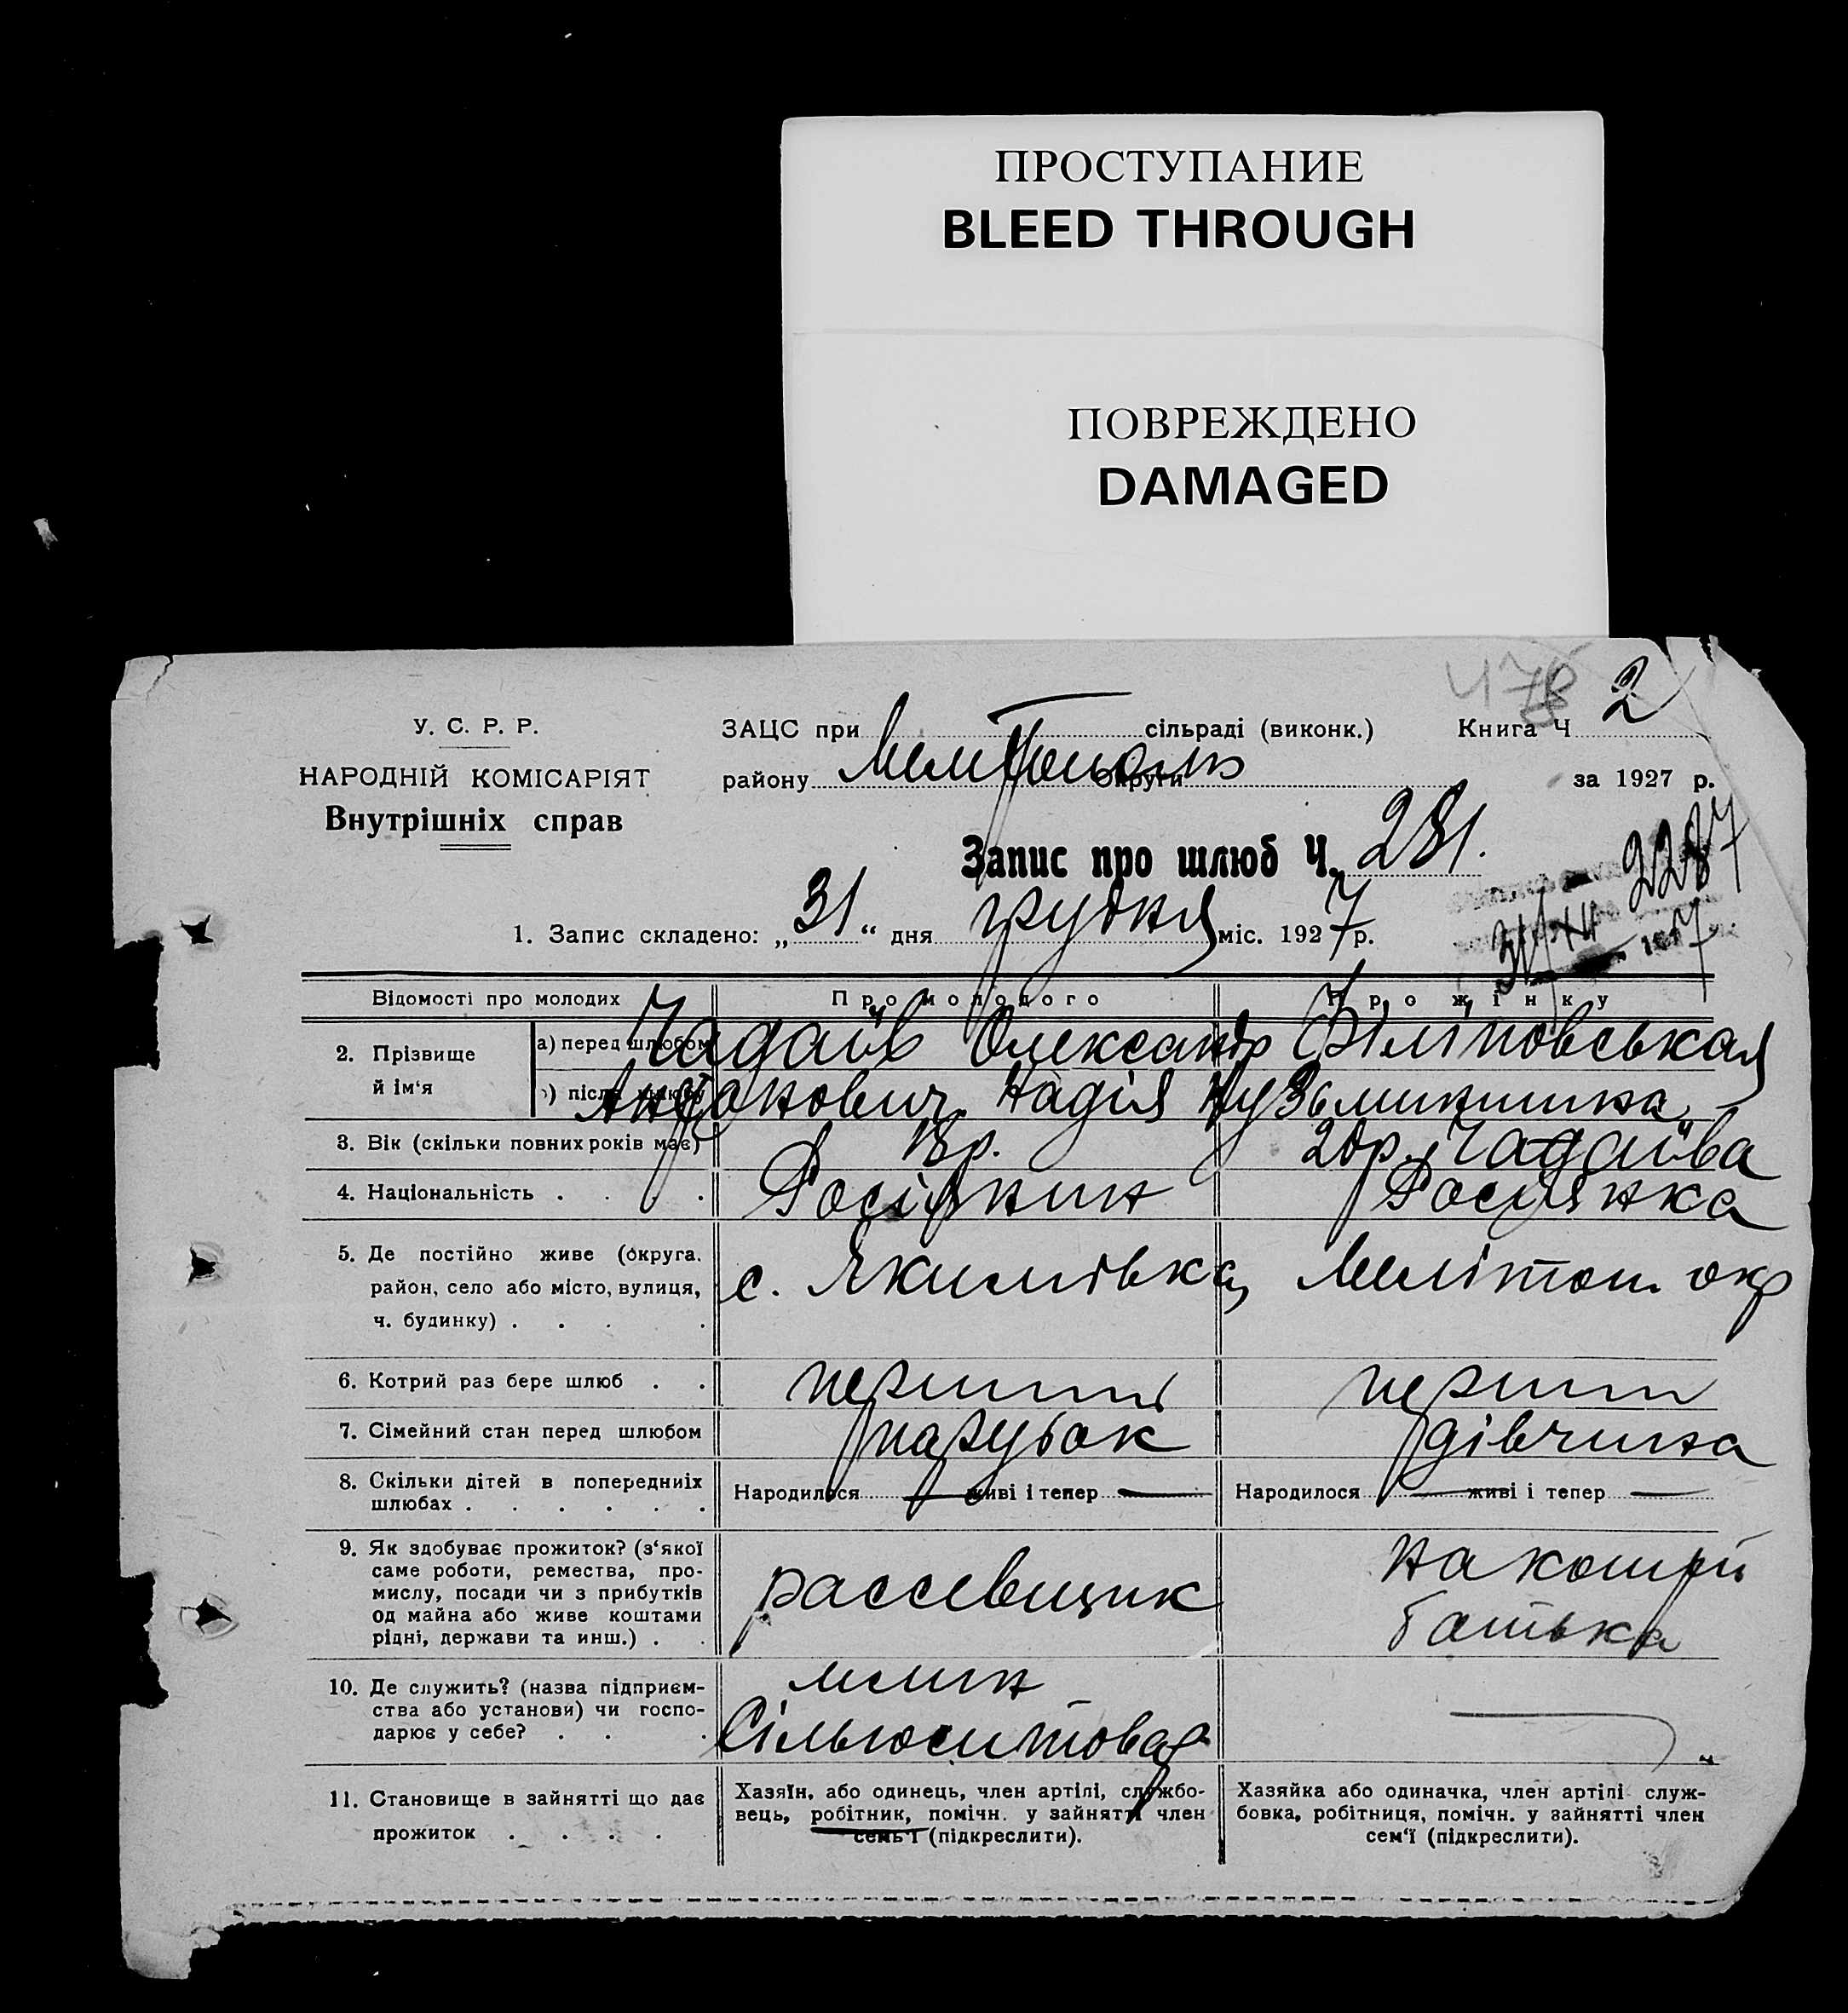 ПРОСТУПАНИЕ
BLEED THROUGH
ПОВРЕЖДЕНО
DAMAGED
478
У. С. Р. Р.
НАРОДНІЙ КОМІСАРІЯТ
Внутрішніх справ
ЗАЦС при сільраді (виконк.) Книга Ч 2
району Мелітополь Округи за 1927 р.
Запис про шлюб Ч. 281.
2287
1. Запис складено: „31“ дня грудня міс. 1927 р.
31/XII 1927
Відомості про молодих Про молодого Про жінку
2. Прізвище й ім‘я
а) перед шлюбом Чадаїв Олександр Філіповськая
) після шлюбу Антонович Надія Кузьминишна
3. Вік (скільки повних років має) 18р. 20р. Чадаїва
4. Національність . . . . Росіянин Росіянка
5. Де постійно живе (округа.
район, село або місто, вулиця,
ч. будинку) . . . .
с. Якимівка, Мелітоп. окр
6. Котрий раз бере шлюб . . перший перший
7. Сімейний стан перед шлюбом парубок дівчина
8. Скільки дітей в попередниіх
шлюбах . . . . . .
Народилося — живі і тепер — Народилося — живі і тепер —
9. Як здобуває прожиток? (з‘якої
саме роботи, ремества, про-
мислу, посади чи з прибутків
од майна або живе коштами
рідні, держави та инш.) . .
рассевщик
на кошти
батька
10. Де служить? (назва підприєм-
ства або установи) чи госпо-
дарює у себе? . . .
млин
11. Становище в зайнятті що дає
прожиток . . . .
Хазяїн, або одинець, член артілі, службо-
вець, робітник, помічн. у зайнятті член
семь‘ї (підкреслити).
Хазяйка або одиначка, член артілі служ-
бовка, робітниця, помічн. у зайнятті член
сем‘ї (підкреслити).